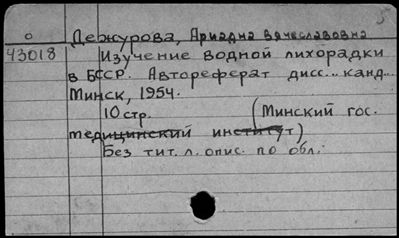 5
о Дежурова, Ариадна Вячеславовна
43018 Изучение водной лихорадки
в БССР. Автореферат дисс... канд..
Минск, 1954.
10 стр. (Минский гос.
медицинский институт)
Без тит. л. опис. по обл.